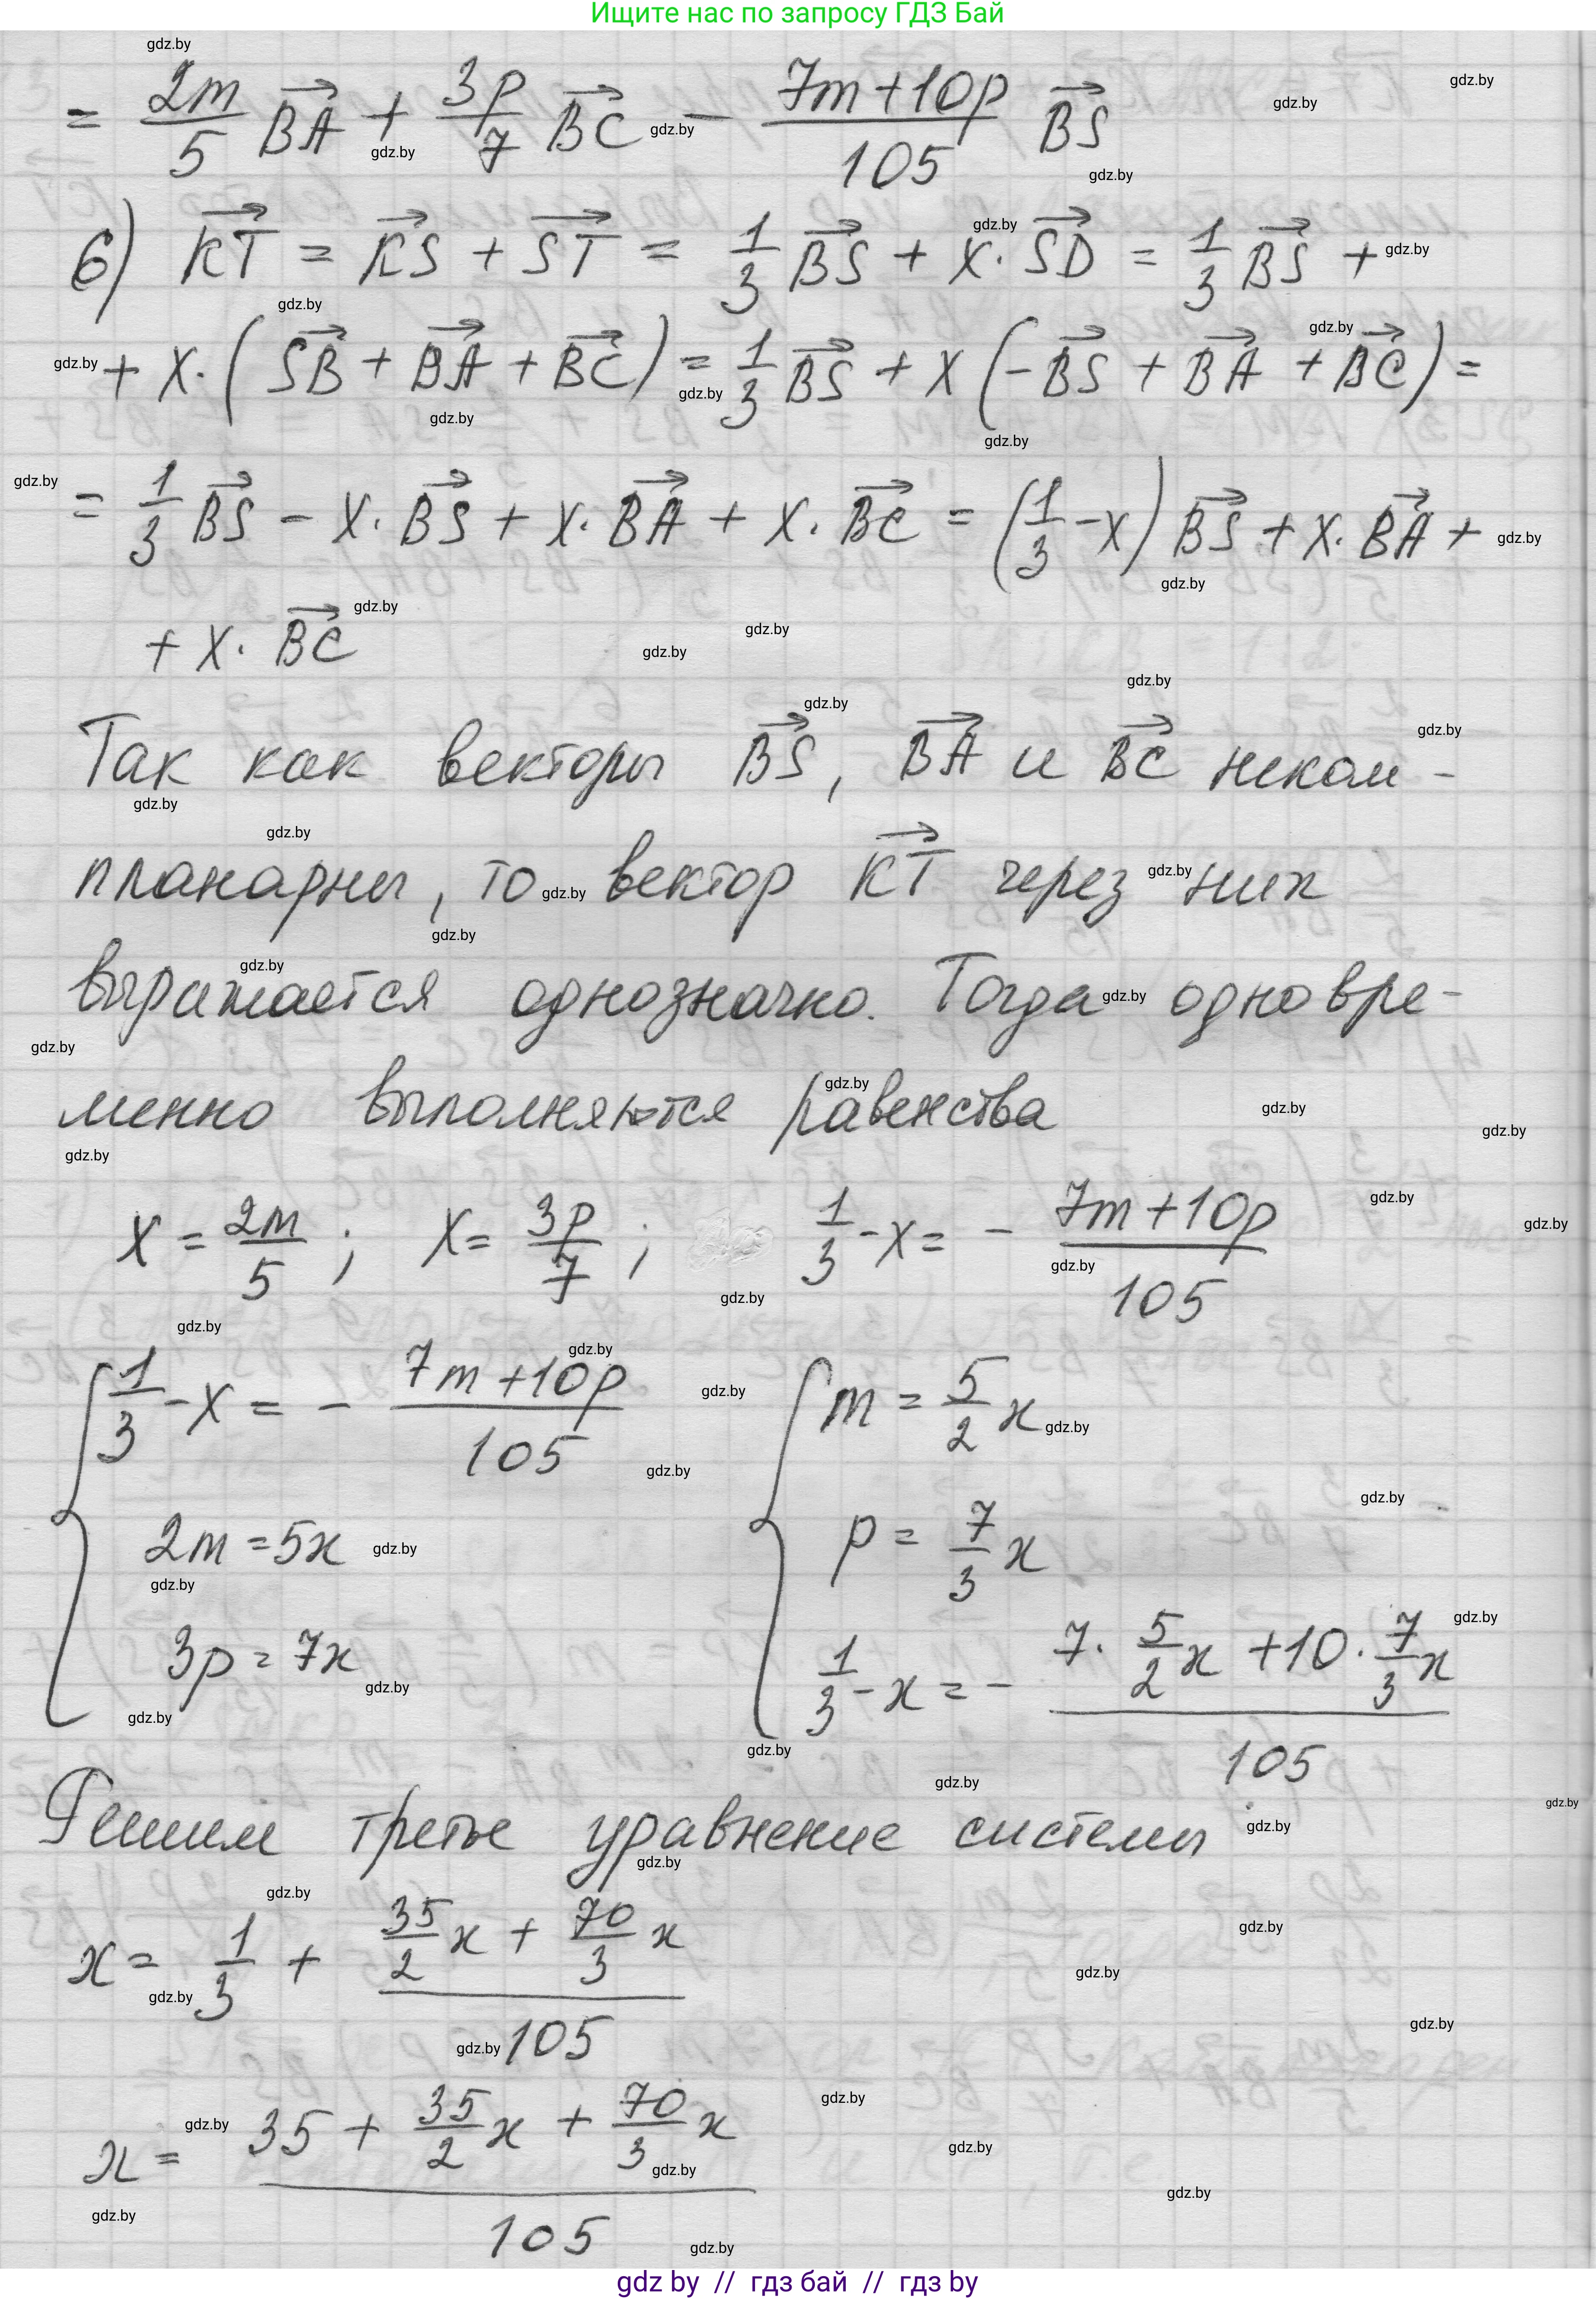 Ищите нас по запросу ГДЗ Бай
= 2m/5 BA→ + 3p/7 BC→ − (7m+10p)/105 BS→
6) KT→ = KS→ + ST→ = 1/3 BS→ + x·SD→ = 1/3 BS→ +
+ x·(SB→ + BA→ + BC→) = 1/3 BS→ + x(−BS→ + BA→ + BC→) =
= 1/3 BS→ − x·BS→ + x·BA→ + x·BC→ = (1/3 − x) BS→ + x·BA→ +
+ x·BC→
Так как векторы BS→, BA→ и BC→ неком-
планарны, то вектор KT→ через них
выражается однозначно. Тогда одновре-
менно выполняются равенства
x = 2m/5; x = 3p/7; 1/3 − x = − (7m+10p)/105
{ 1/3 − x = − (7m+10p)/105 { m = 5/2 x
2m = 5x p = 7/3 x
3p = 7x 1/3 − x = − (7·5/2 x + 10·7/3 x)/105
Решим третье уравнение системы
x = 1/3 + (35/2 x + 70/3 x)/105
x = (35 + 35/2 x + 70/3 x)/105
gdz by // гдз бай // гдз by